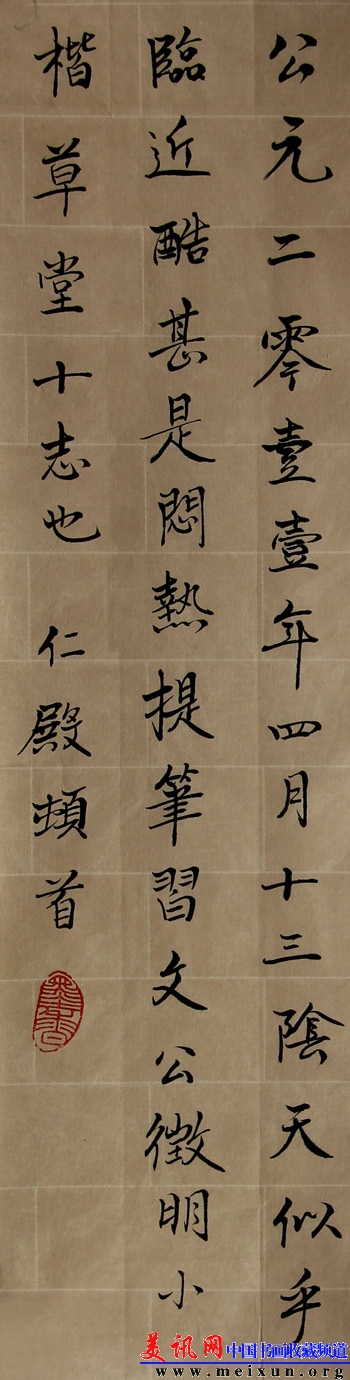 公元二零壹壹年四月十三陰天似乎
臨近酷甚是悶熱提筆習文公徵明小
楷草堂十志也 仁殿頓首
美讯网中国书画收藏频道
www.meixun.org